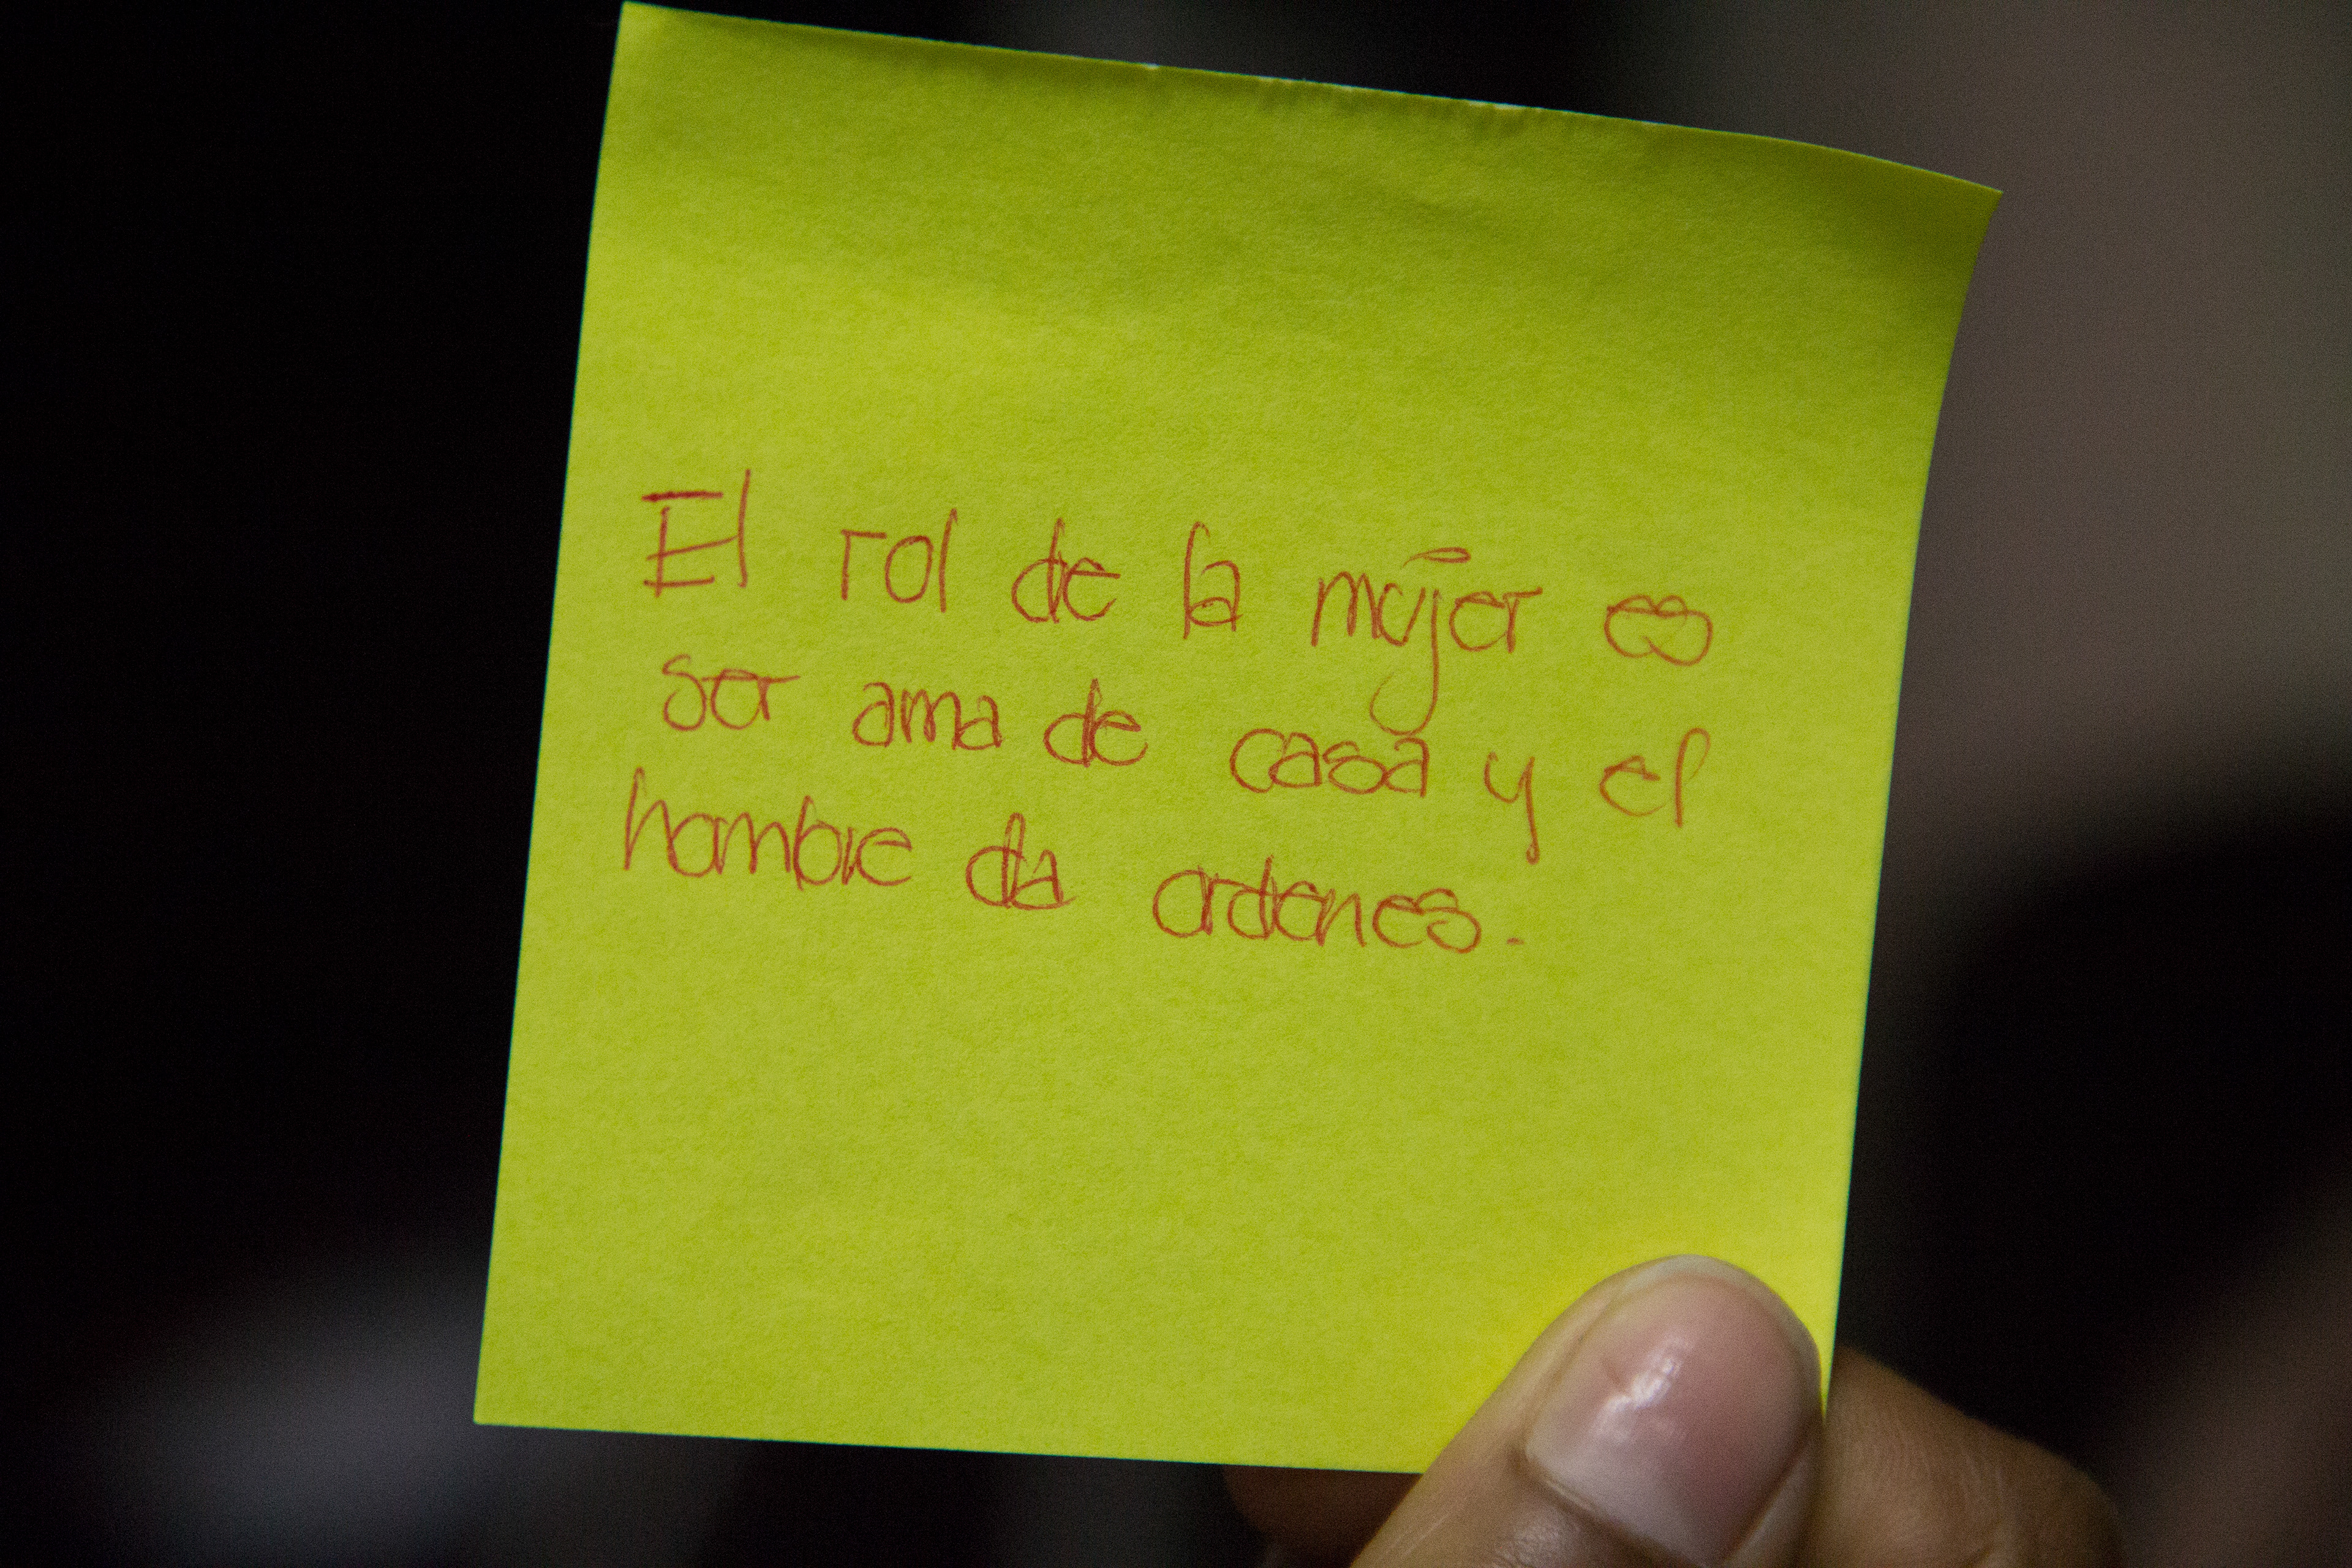 El rol de la mujer es
ser ama de casa y el
hombre da ordenes.